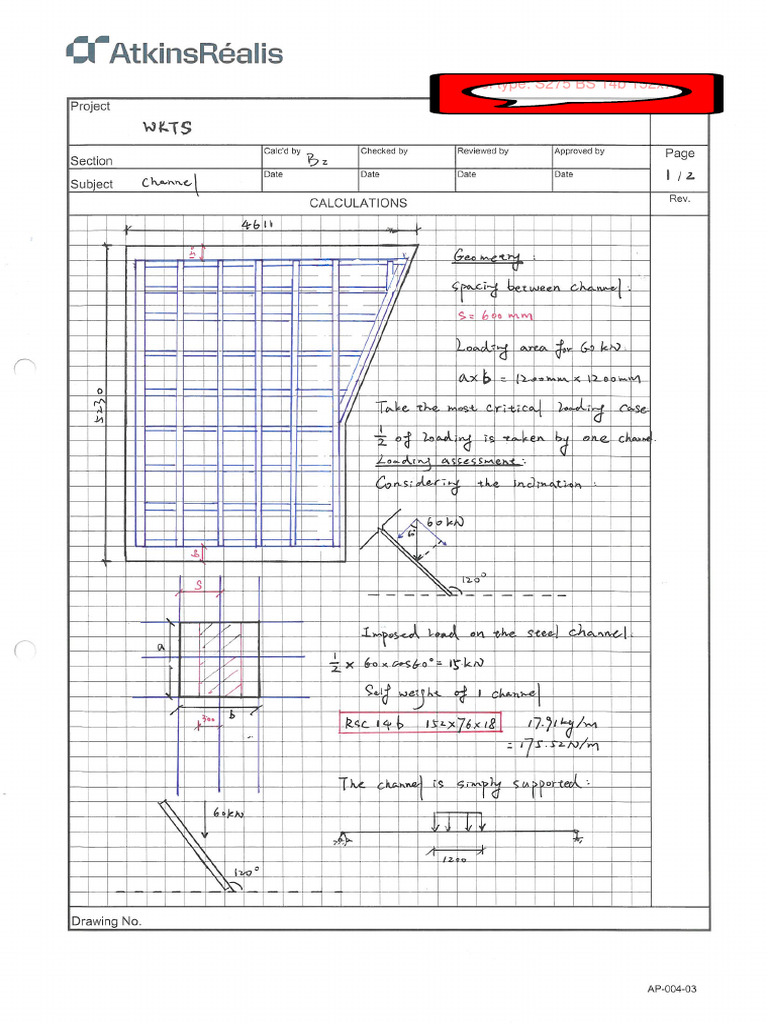 AtkinsRéalis
type: S275 BS 14b 152x
Project
WKTS
Section
Calc'd by
BZ
Checked by
Reviewed by
Approved by
Page
1/2
Subject
Channel
Date
Date
Date
Date
Rev.
CALCULATIONS
4611
5230
Geometry:
spacing between channel:
s = 600 mm
Loading area for 60 kN
a×b = 1200mm × 1200mm
Take the most critical loading case
1/2 of loading is taken by one channel.
Loading assessment:
Considering the inclination:
60kN
120°
S
a
b
300
Imposed Load on the steel channel.
1/2 × 60 × cos60° = 15 kN
Self weighe of 1 channel
RSC 14b 152×76×18
17.91kg/m
= 175.52N/m
The channel is simply supported:
1200
60kN
120°
Drawing No.
AP-004-03